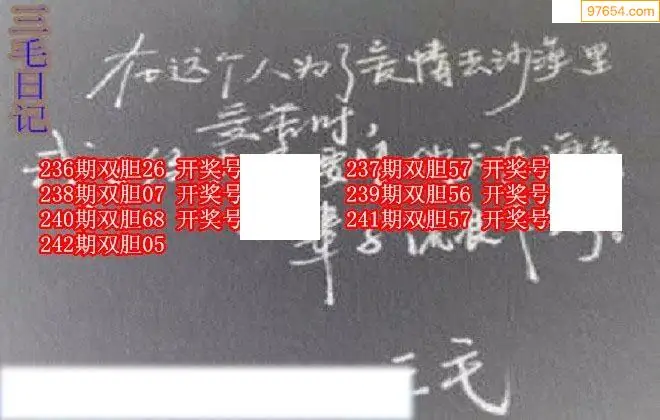 97654.com
三毛日记
在这个人为了爱情去沙漠里
受苦时，
236期双胆26 开奖号
237期双胆57 开奖号
238期双胆07 开奖号
239期双胆56 开奖号
240期双胆68 开奖号
241期双胆57 开奖号
242期双胆05
三毛